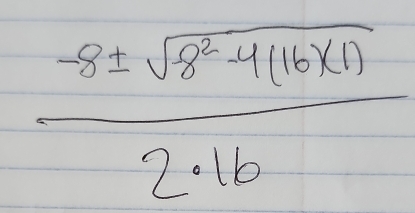 -8 ± √-8² -4(16)(1)
2·16